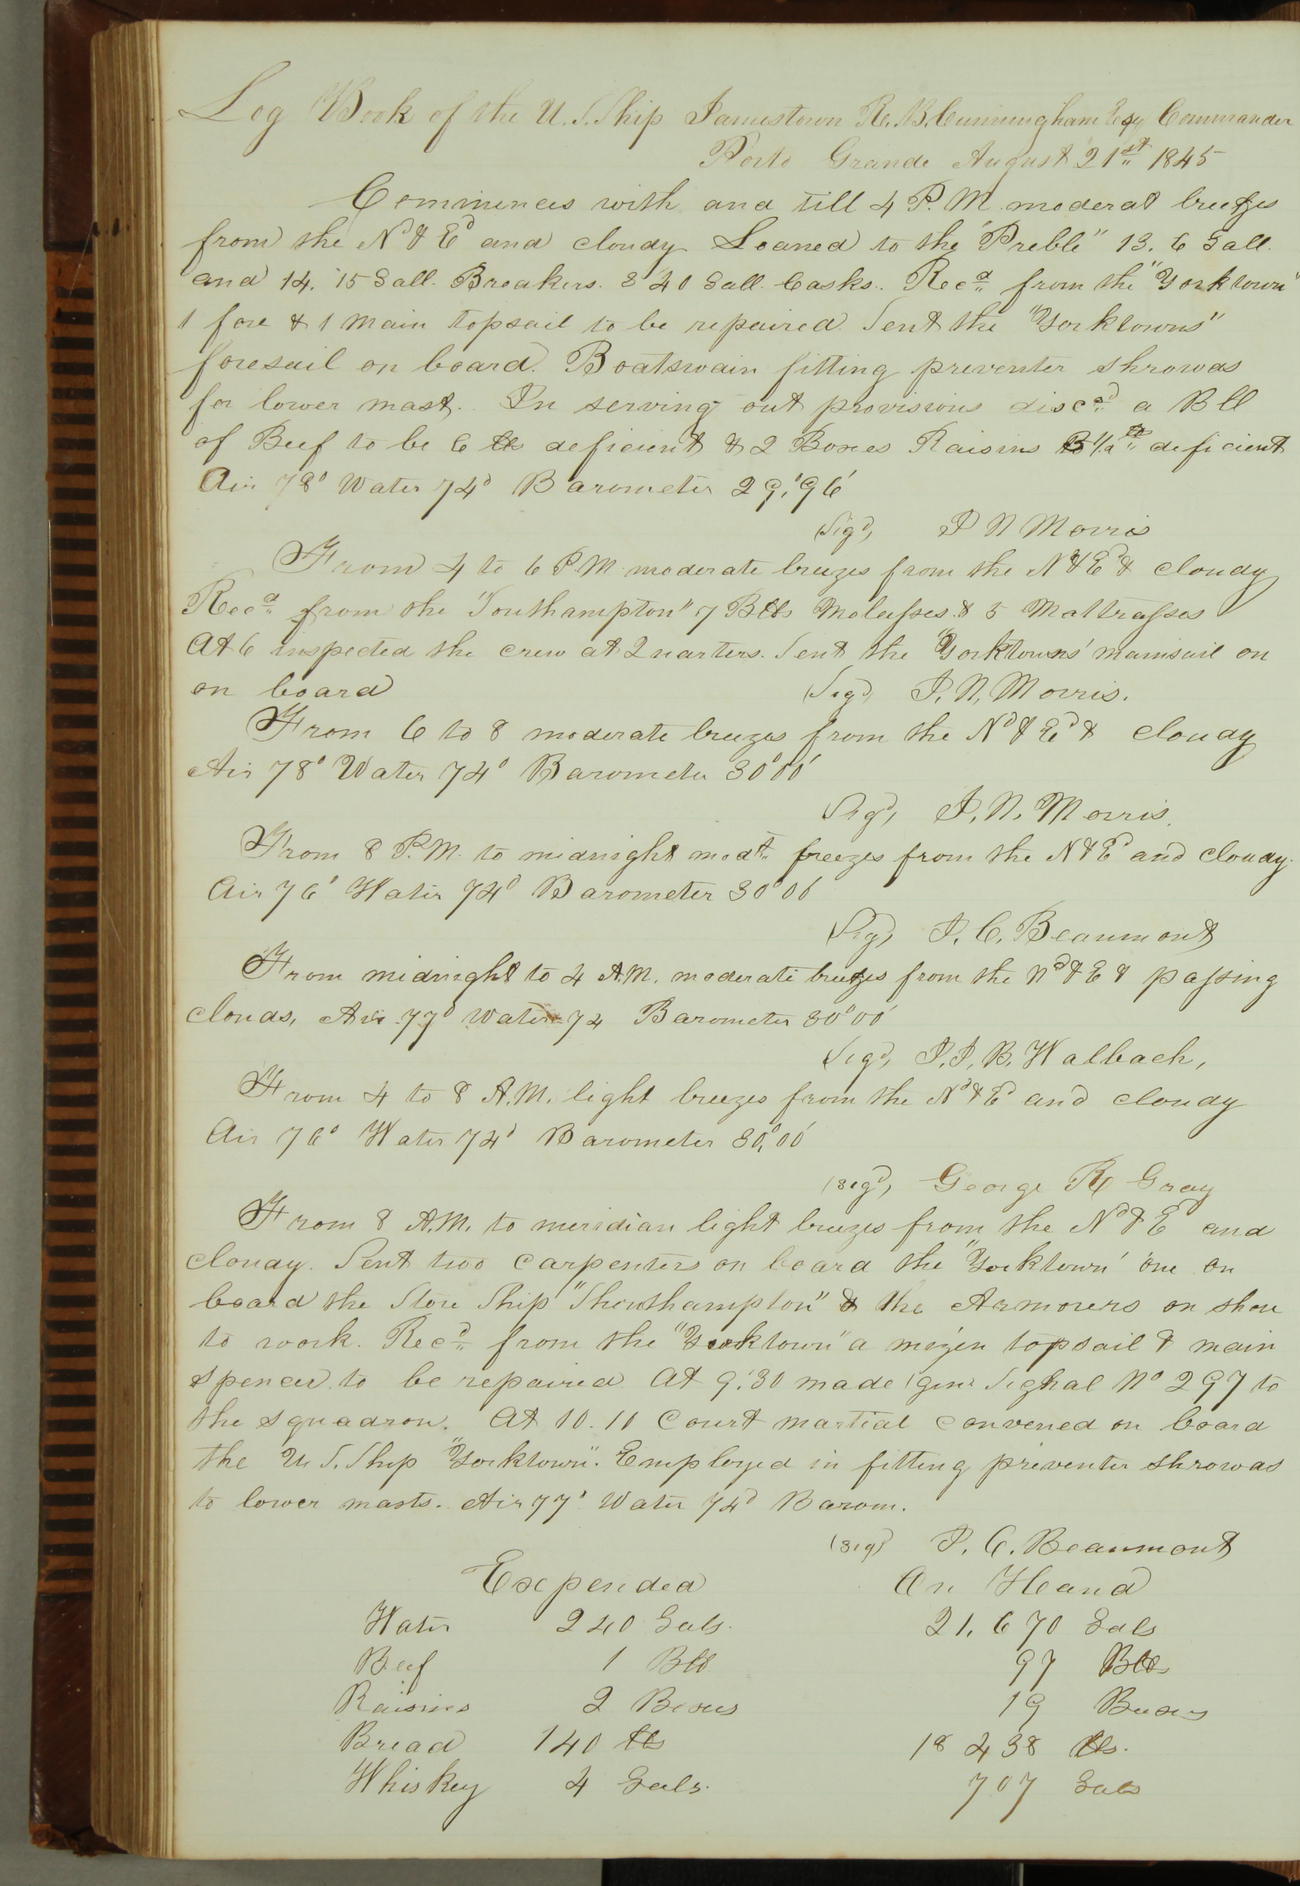 Log Book of the U.S. Ship Jamestown R. B. Cunningham Esqr Commander
Porto Grande August 21st 1845
Commences with and till 4 P.M. moderat breezes
from the Nd & Ed and cloudy Loaned to the "Preble" 13. 6 Gall.
and 14. 15 Gall. Breakers. 3 40 Gall. Casks. Recd from the "Yorktown"
1 fore & 1 main topsail to be repaired. Sent the "Yorktowns"
foresail on board. Boatswain fitting preventer shrowds
for lower mast. In serving out provisions discd a Bll
of Beef to be 6 lbs deficient & 2 Boxes Raisins 1/2 lb deficient
Air 78° Water 74° Barometer 29.°96'
Sigd, J N Morris
From 4 to 6 P.M. moderate breezes from the N & Ed & cloudy
Recd from the "Southampton" 7 Bbls Molasses & 5 Mattrasses
At 6 inspected the crew at Quarters. Sent the "Yorktowns' mainsail on
on board (Sigd, J. N. Morris.
From 6 to 8 moderate breezes from the Nd & Ed & cloudy
Air 78° Water 74° Barometer 30°00'
Sigd, J. N. Morris.
From 8 P.M. to midnight modt breezes from the N & Ed and cloudy.
Air 76° Water 74° Barometer 30°00'
Sigd, J. C. Beaumont
From midnight to 4 A.M. moderate breezes from the Nd & E & passing
clouds, Air 77° Water 74 Barometer 30°00'
Sigd, J. J. B. Walbach,
From 4 to 8 A.M. light breezes from the Nd & Ed and cloudy
Air 76° Water 74° Barometer 30,°00'
(sigd, George R Gray
From 8 A.M. to meridian light breezes from the Nd & Ed and
cloudy. Sent two carpenters on board the "Yorktown' one on
board the Store Ship "Shouthampton" & the Armorers on shore
to work. Recd from the "Yorktown" a mizen topsail & main
spencer to be repaired At 9.30 made genl Signal No 297 to
the squadron. At 10.10 Court martial convened on board
the U.S. Ship "Yorktown". Employed in fitting preventer shrowds
to lower masts. Air 77° Water 74° Barom.
(sigd) J. C. Beaumont
Expended On Hand
Water 240 Gals. 21,670 Gals
Beef 1 Bbl 97 Bbls
Raisins 2 Boxes 19 Boxes
Bread 140 lbs 18 438 lbs.
Whiskey 4 Gals. 707 Gals